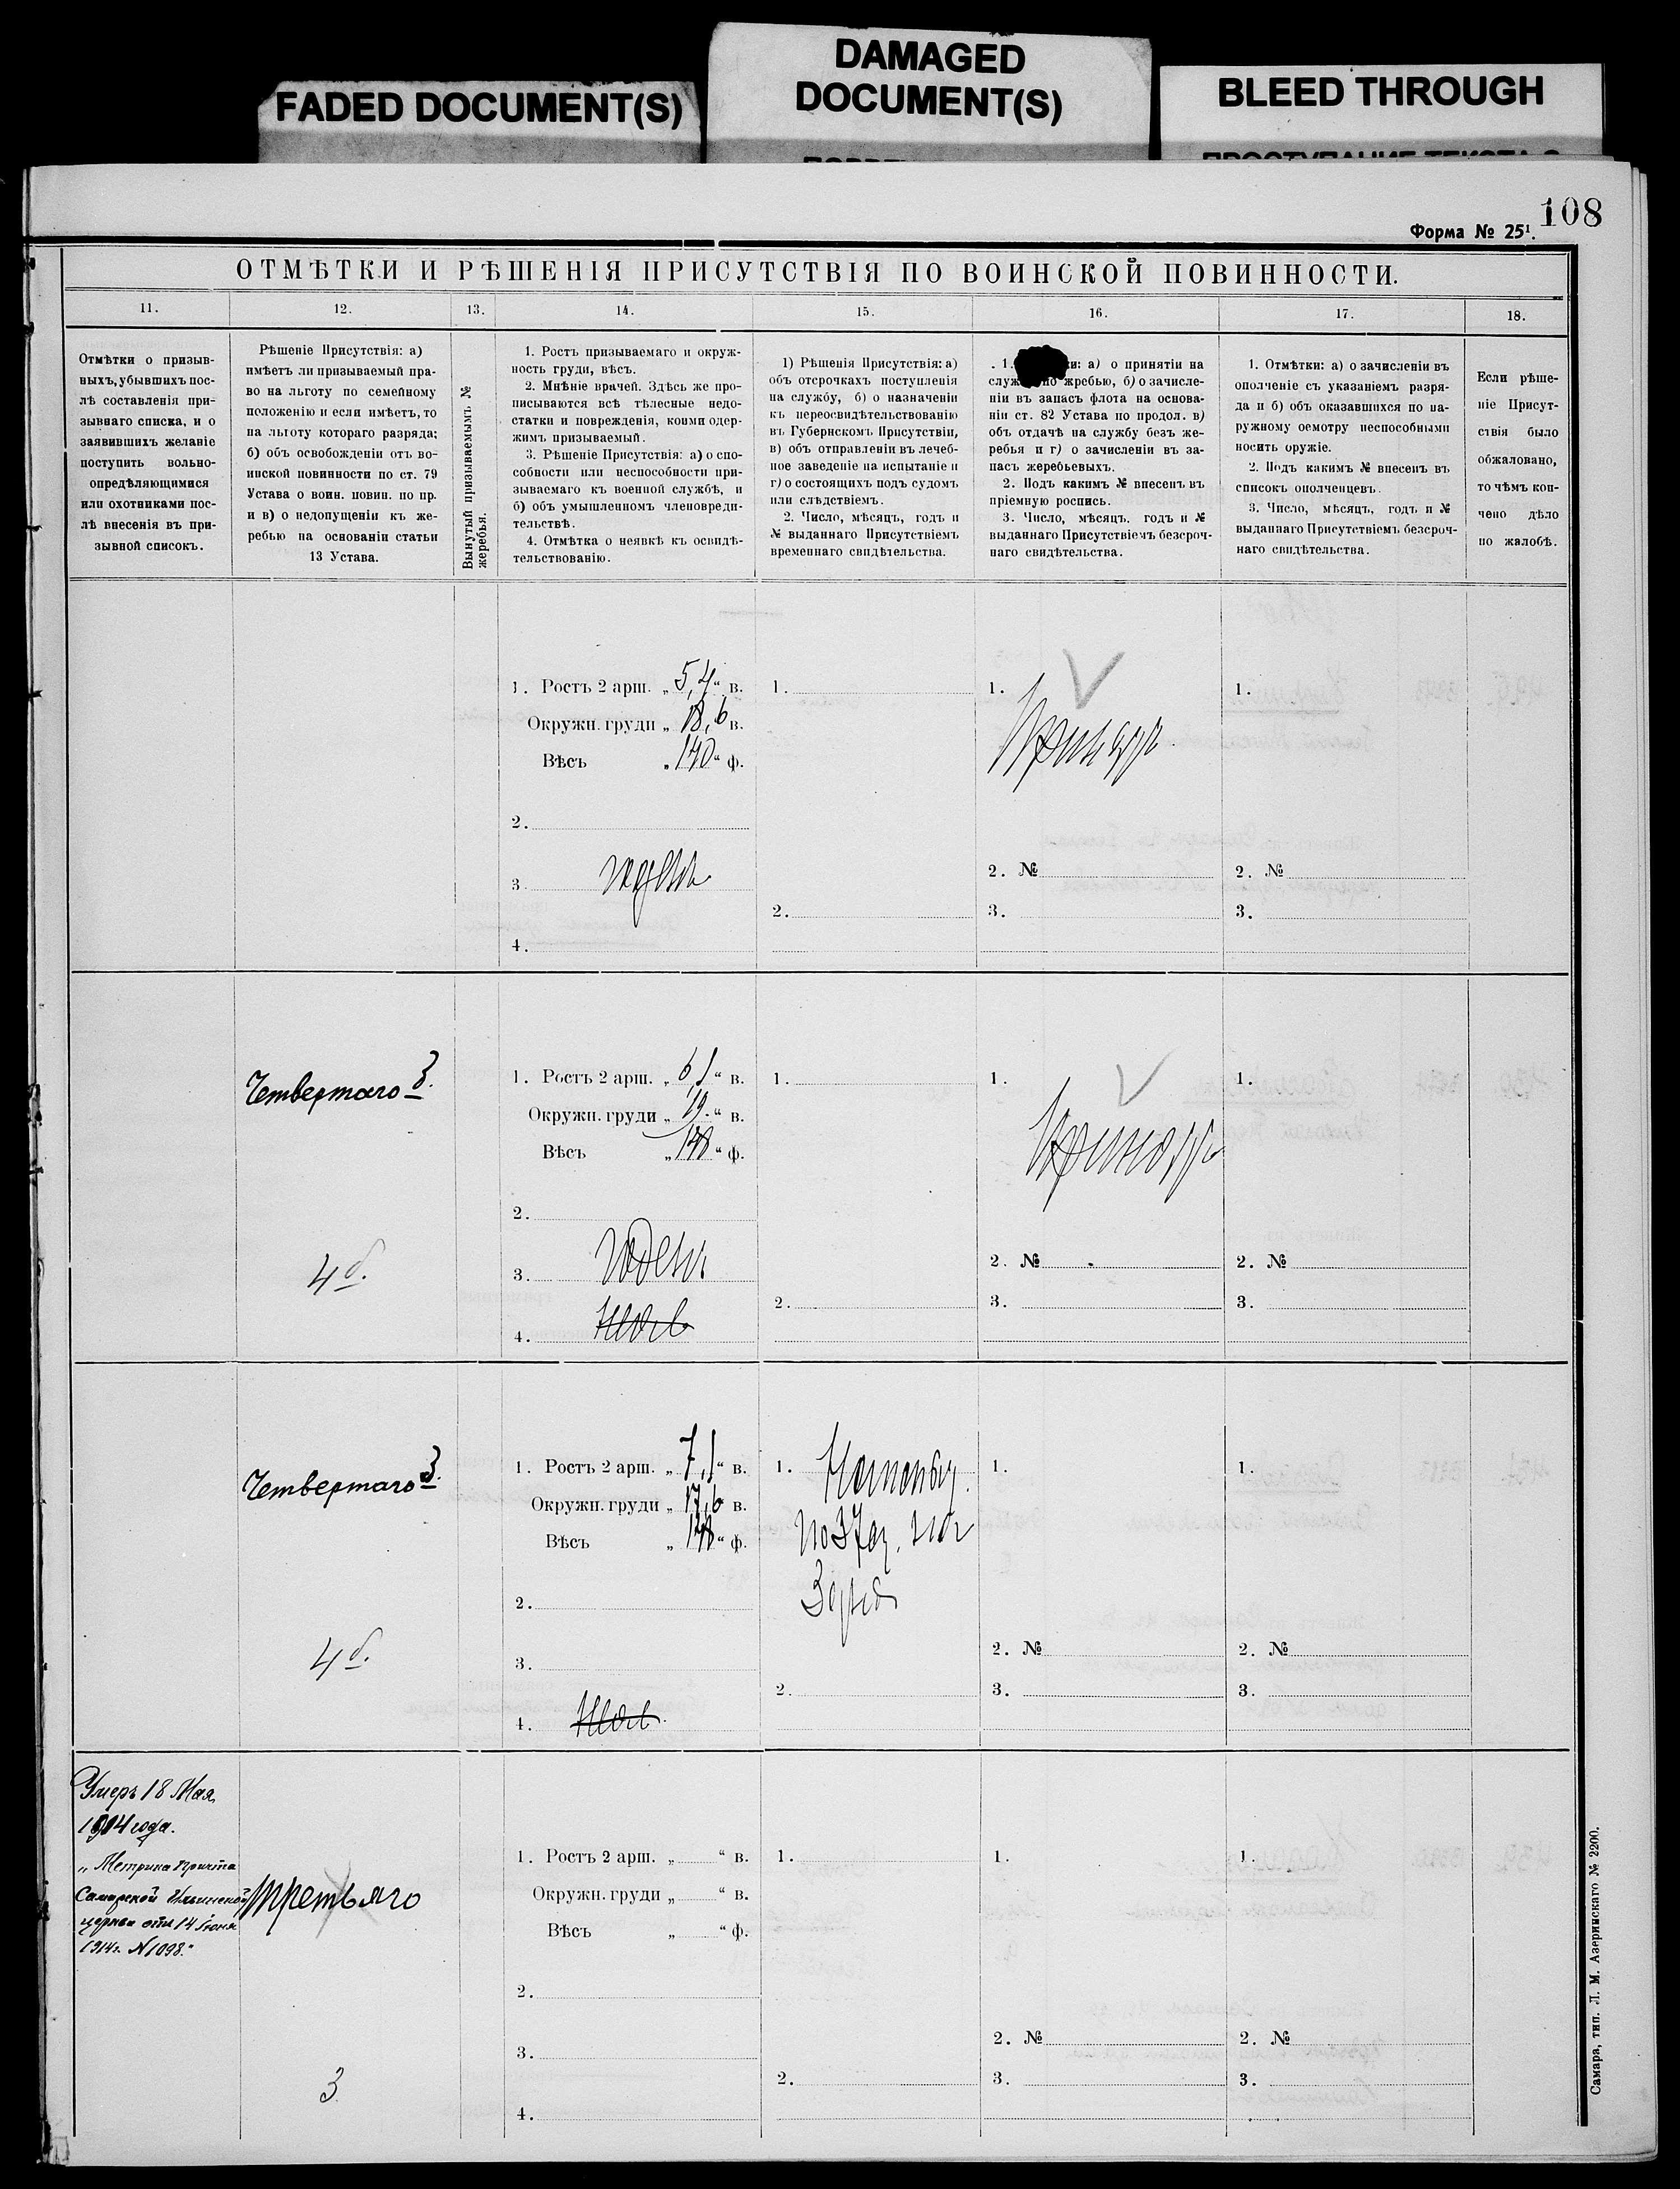 FADED DOCUMENT(S)
DAMAGED
DOCUMENT(S)
BLEED THROUGH
108
Форма № 25¹.
ОТМѢТКИ И РѢШЕНІЯ ПРИСУТСТВІЯ ПО ВОИНСКОЙ ПОВИННОСТИ.
11.
12.
13.
14.
15.
16.
17.
18.
Отмѣтки о призыв-
ныхъ, убывшихъ пос-
лѣ составленія при-
зывнаго списка, и о
заявившихъ желаніе
поступить вольно-
опредѣляющимися
или охотниками пос-
лѣ внесенія въ при-
зывной списокъ.
Рѣшеніе Присутствія: а)
имѣетъ ли призываемый пра-
во на льготу по семейному
положенію и если имѣетъ, то
на льготу котораго разряда;
б) объ освобожденіи отъ во-
инской повинности по ст. 79
Устава о воин. повин. по пр.
и в) о недопущеніи къ же-
ребью на основаніи статьи
13 Устава.
Вынутый призываемымъ №
жеребья.
1. Ростъ призываемаго и окруж-
ность груди, вѣсъ.
2. Мнѣніе врачей. Здѣсь же про-
писываются всѣ тѣлесные недо-
статки и поврежденія, коими одер-
жимъ призываемый.
3. Рѣшеніе Присутствія: а) о спо-
собности или неспособности при-
зываемаго къ военной службѣ, и
б) объ умышленномъ членовреди-
тельствѣ.
4. Отмѣтка о неявкѣ къ освидѣ-
тельствованію.
1) Рѣшенія Присутствія: а)
объ отсрочкахъ поступленія
на службу, б) о назначеніи
къ переосвидѣтельствованію
въ Губернскомъ Присутствіи,
в) объ отправленіи въ лечеб-
ное заведеніе на испытаніе и
г) о состоящихъ подъ судомъ
или слѣдствіемъ.
2. Число, мѣсяцъ, годъ и
№ выданнаго Присутствіемъ
временнаго свидѣтельства.
1. и: а) о принятіи на
служ по жребью, б) о зачисле-
ніи въ запасъ флота на основа-
ніи ст. 82 Устава по продол. в)
объ отдачѣ на службу безъ же-
ребья и г) о зачисленіи въ за-
пасъ жеребьевыхъ.
2. Подъ какимъ № внесенъ въ
пріемную роспись.
3. Число, мѣсяцъ, годъ и №
выданнаго Присутствіемъ безсроч-
наго свидѣтельства.
1. Отмѣтки: а) о зачисленіи въ
ополченіе съ указаніемъ разря-
да и б) объ оказавшихся по на-
ружному осмотру неспособными
носить оружіе.
2. Подъ какимъ № внесенъ въ
списокъ ополченцевъ.
3. Число, мѣсяцъ, годъ и №
выданнаго Присутствіемъ безсроч-
наго свидѣтельства.
Если рѣше-
ніе Присут-
ствія было
обжаловано,
то чѣмъ кон-
чено дѣло
по жалобѣ.
1. Ростъ 2 арш. „ 5,4 “ в.
Окружн. груди „ 18,6 в.
Вѣсъ „ 140 “ ф.
2.
3. годенъ
4.
1.
2.
1. Принятъ
2. №
3.
1.
2. №
3.
Четвертаго
4 б.
1. Ростъ 2 арш. „ 6,1 “ в.
Окружн. груди „ 19. “ в.
Вѣсъ „ 148 “ ф.
2.
3. Годенъ
4.
1.
2.
1. Принятъ
2. №
3.
1.
2. №
3.
Четвертаго
4 б.
1. Ростъ 2 арш. „ 7,1 “ в.
Окружн. груди „ 17,6 в.
Вѣсъ „ 148 “ ф.
2.
3.
4.
1.
2.
1.
2. №
3.
1.
2. №
3.
Умеръ 18 Мая
1914 года.
„Метрика причта
Самарской Ильинской
церкви отъ 14 Іюня
1914 г. N 1098.“
Третьяго
3
1. Ростъ 2 арш. „ “ в.
Окружн. груди „ “ в.
Вѣсъ „ “ ф.
2.
3.
4.
1.
2.
1.
2. №
3.
1.
2. №
3.
Самара, тип. Л. М. Азеринскаго № 2200.